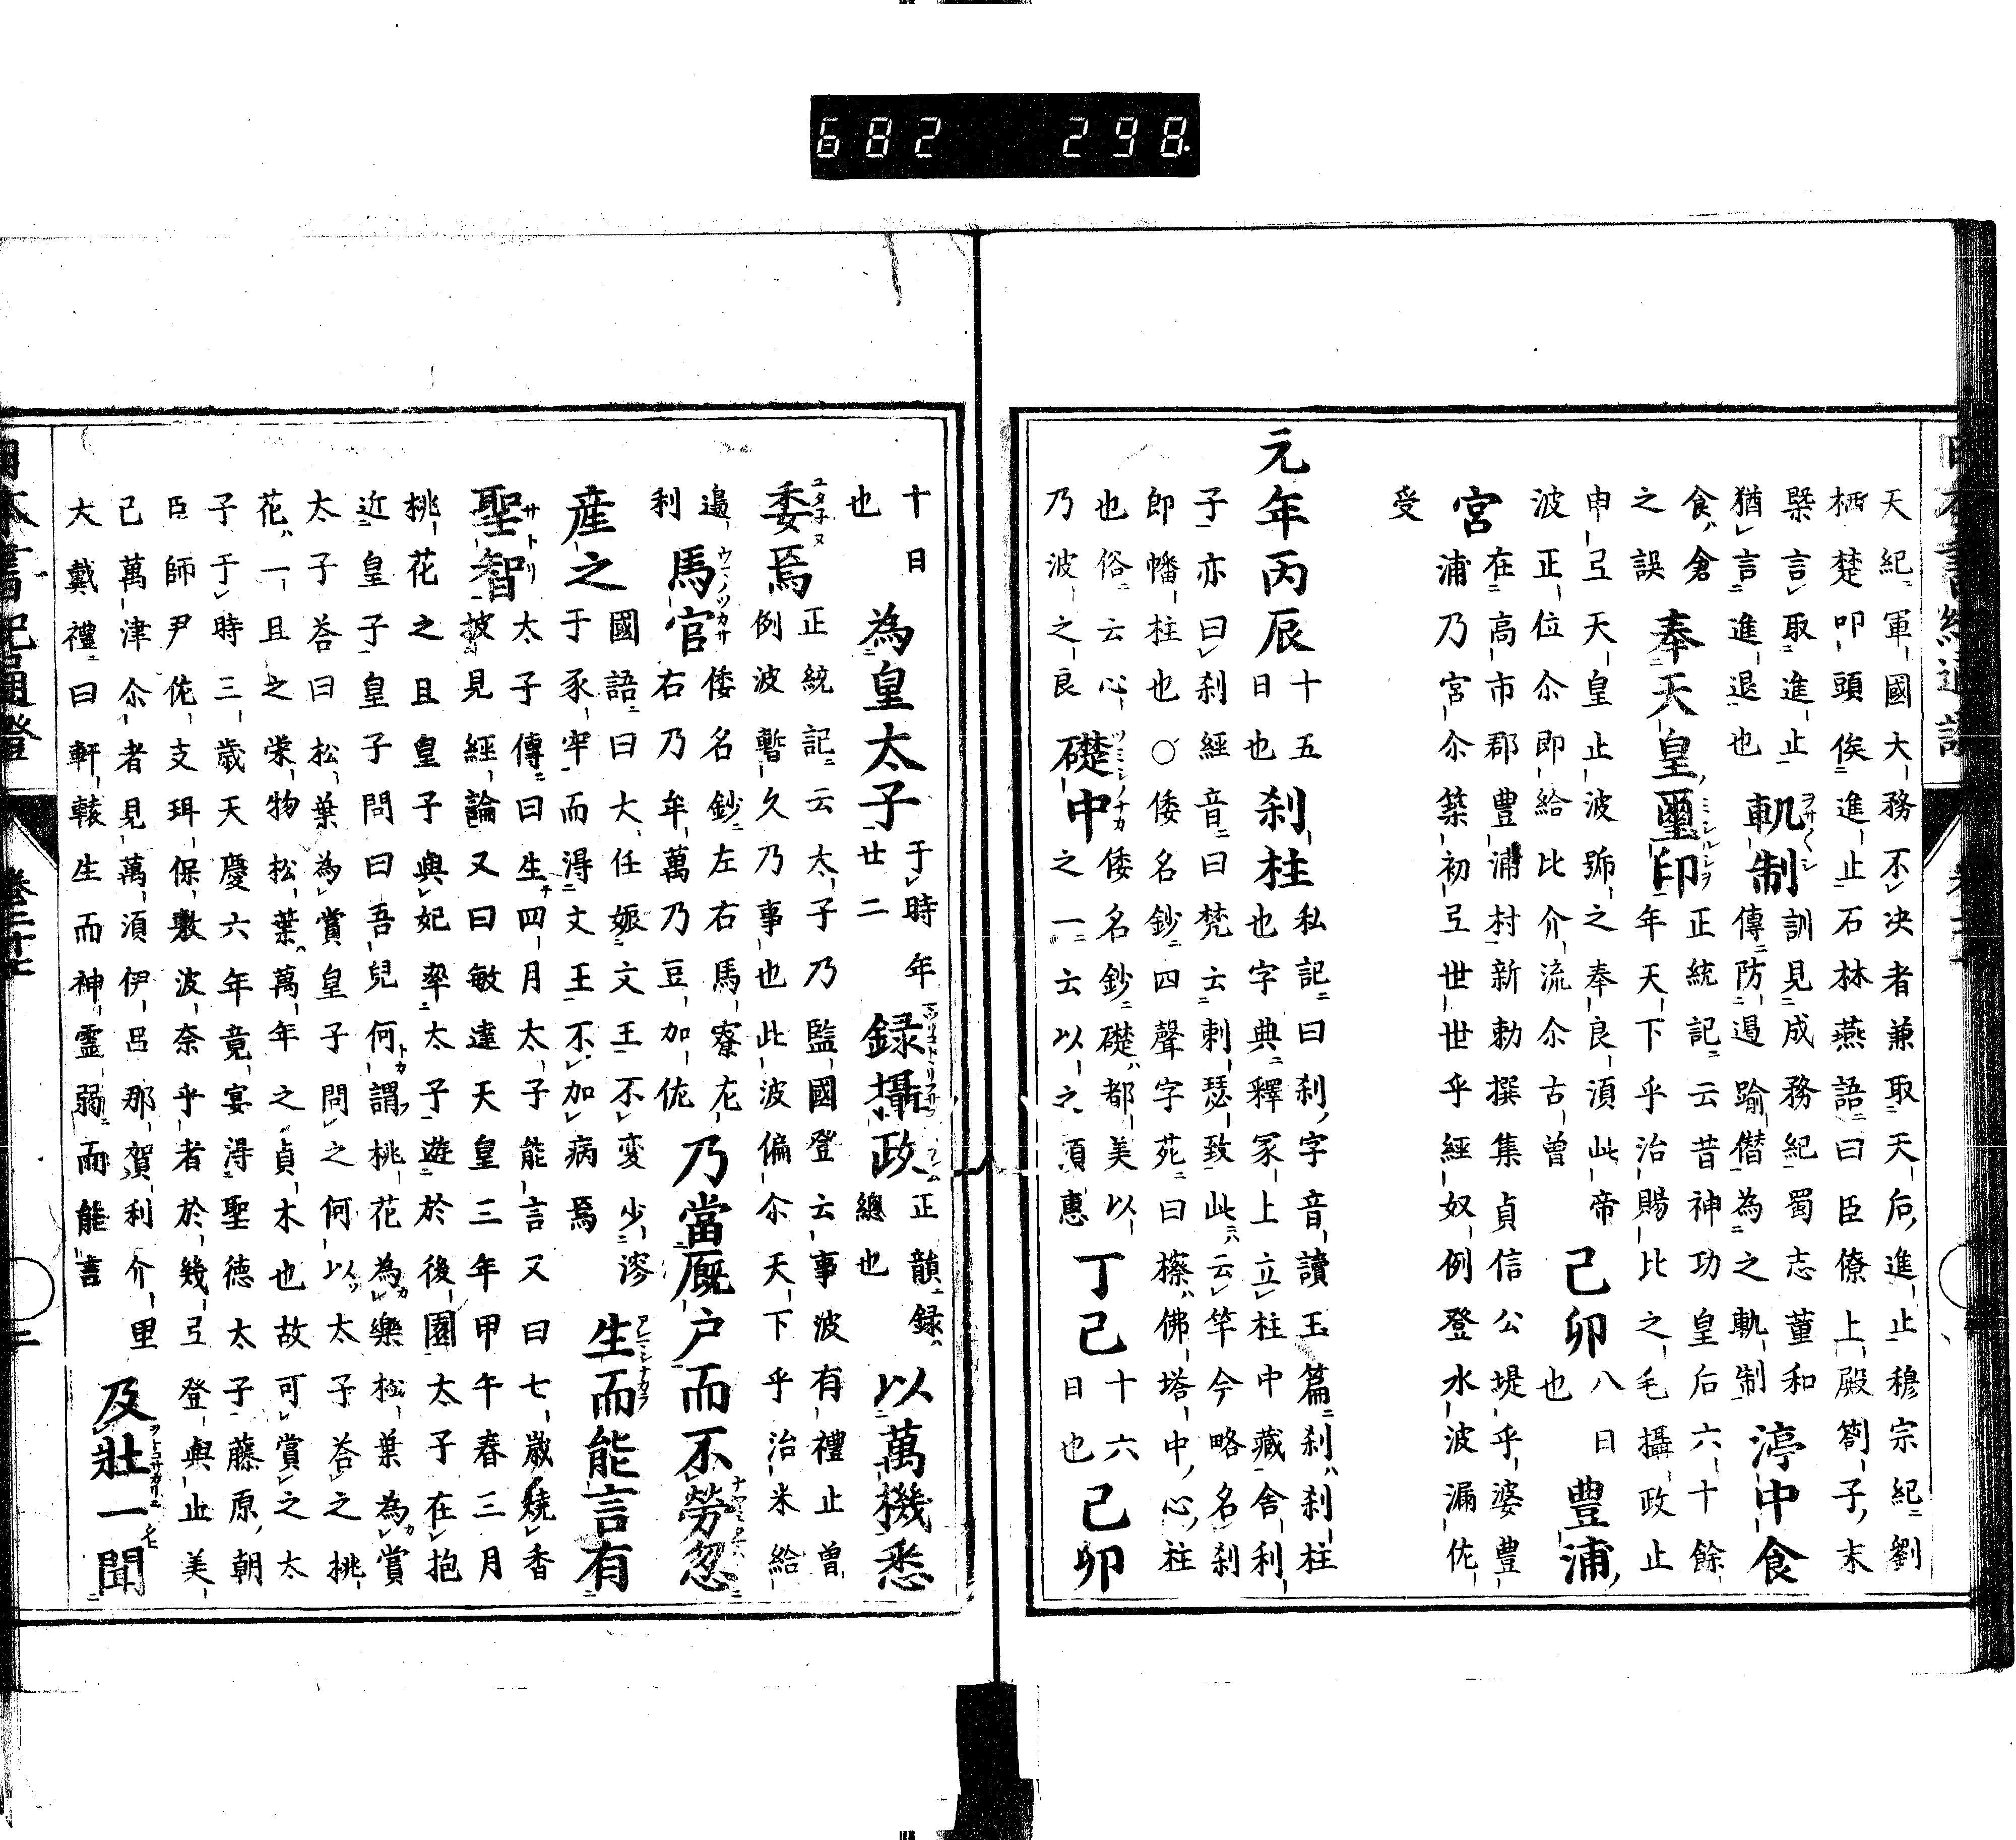 682 298
天紀軍國大務不决者兼取天后進止穆宗紀劉
栖楚叩頭俟進止石林燕語曰臣僚上殿劄子末
槩言取進止
猶言進退也
軌制
訓見成務紀蜀志董和
傳防遏踰僣為之軌制
渟中食
食倉
奉天皇璽印
正統記云昔神功皇后六十餘
年天下乎治賜比之毛攝政止
之誤
申弖天皇止波號之奉良須此帝
波正位尒即給比介流尒古曽
己卯
八日
也
豊浦
宮
在高市郡豊浦村新勅撰集貞信公堤乎婆豊
浦乃宮尒築初弖世世乎經奴例登水波漏佐
受
元年丙辰
十五
日也
刹柱
私記曰刹字音讀玉篇刹刹柱
也字典釋冢上立柱中藏舍利
子亦曰刹經音曰梵云刺瑟致此云竿今略名刹
即幡柱也○倭名鈔四聲字苑曰檫佛塔中心柱
也俗云心
乃波之良
礎中
倭名鈔礎都美以
之一云以之須惠
丁己
十六
日也
己卯
十日
也
為皇太子
于時年
廿二
録攝政
正韻録
總也
以萬機悉
委焉
正統記云太子乃監國登云事波有禮止曾
例波暫久乃事也此波偏尒天下乎治米給
邉
利
馬官
倭名鈔左右馬寮左
右乃牟萬乃豆加佐
乃當厩户而不勞忽
産之
國語曰大任娠文王不変少溲
于豕牢而得文王不加病焉
生而能言有
聖智
太子傳曰生四月太子能言又曰七歳燒香
披見經論又曰敏達天皇三年甲午春三月
桃花之且皇子與妃率太子遊於後園太子在抱
近皇子皇子問曰吾兒何謂桃花為樂松葉為賞
太子荅曰松葉為賞皇子問之何以太子荅之桃
花一且之栄物松葉萬年之貞木也故可賞之太
子于時三歳天慶六年竟宴得聖徳太子藤原朝
臣師尹佐支珥保敷波奈乎者於幾弖登與止美
己萬津尒者見萬須伊呂那賀利介里
大戴禮曰軒轅生而神靈弱而能言
及壯一聞